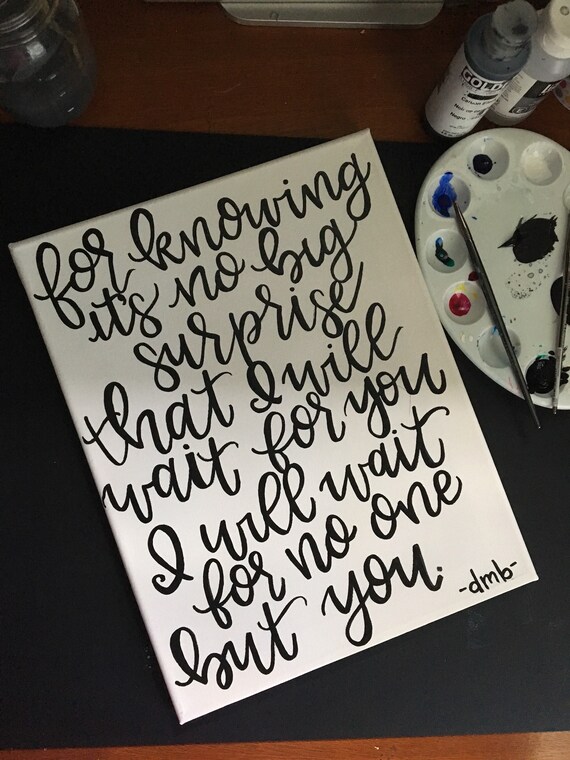 for knowing
it's no big
surprise
that I will
wait for you
I will wait
for no one
but you.
-dmb-
GOLD